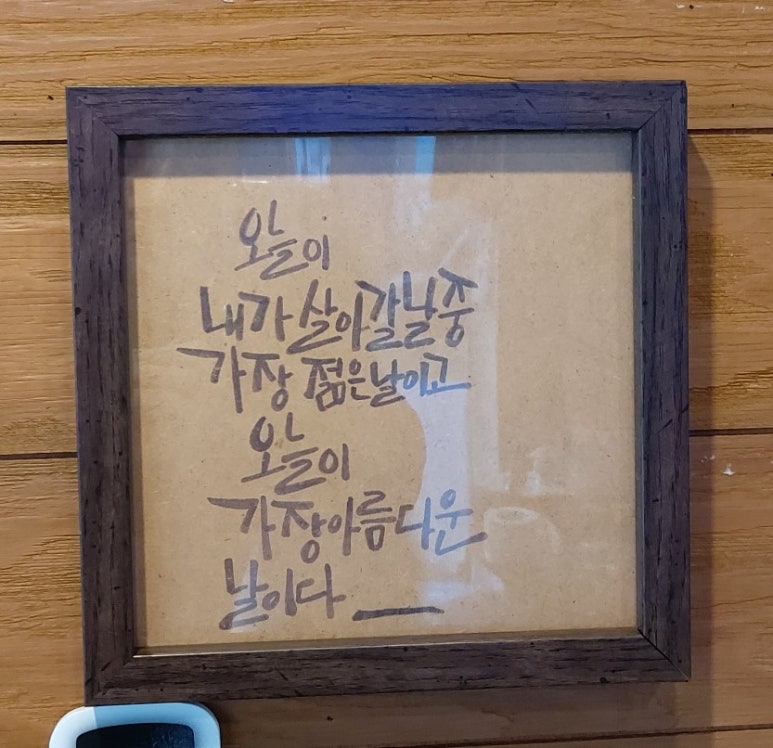 오늘이
내가 살아갈 날 중
가장 젊은 날이고
오늘이
가장 아름다운
날이다